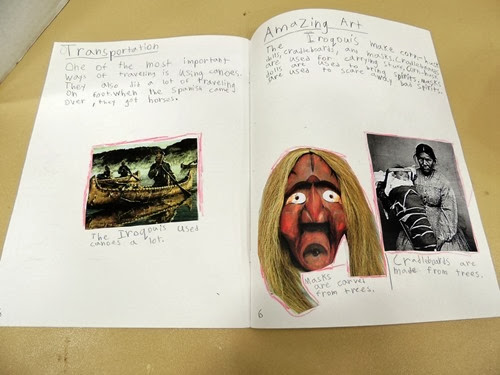 Transportation
One of the most important
ways of traveling is using canoes.
They also did a lot of traveling
on foot. When the Spanish came
over, they got horses.
The Iroquois used
canoes a lot.
Amazing Art
The Iroquois make corn-husk
dolls, cradleboards, and masks. Cradleboards
are used for carrying stuff. Corn-husk
dolls are used to bring spirits. Masks
are used to scare away bad spirits.
Masks
are carved
from trees.
Cradleboards are
made from trees.
6